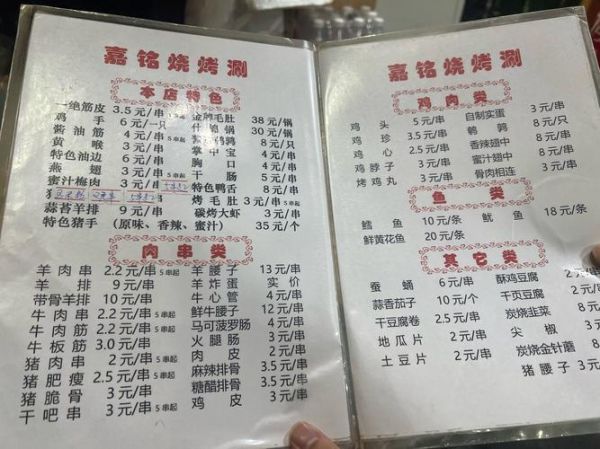 嘉铭烧烤涮
本店特色
一绝筋皮 3.5元/串 5串起
鸡手 6元/一只
酱油筋 4元/串 5串起
黄喉 3元/串
特色油边 6元/串
燕翅 3元/串 5串起
蜜汁梅肉 3元/串
蒜苔羊排 9元/串
金牌毛肚 38元/锅
什锦锅 30元/锅
8元/只
掌中宝 4元/串
胸口 4元/串
干肠 5元/串
特色鸭舌 8元/串
烤毛肚 3元/串 5串起
碳烤大虾 3元/串
特色猪手（原味、香辣、蜜汁） 35元/个
肉串类
羊肉串 2.2元/串 5串起
羊排 9元/串
带骨羊排 10元/串
牛肉串 2.2元/串 5串起
牛肉筋 2.2元/串 5串起
牛板筋 3.0元/串
猪肉串 2元/串 5串起
猪肥瘦 2.5元/串 5串起
猪脆骨 3元/串
干吧串 3元/串 5串起
羊腰子 13元/串
羊炸蛋 实价
牛心管 4元/串
鲜牛腰子 12元/串
马可菠罗肠 4元/串
火腿肠 3元/串
肉皮 2元/串
麻辣排骨 3.5元/串
糖醋排骨 3.5元/串
鸡皮 3元/串
嘉铭烧烤涮
鸡肉类
鸡头 5元/串
鸡珍 3.5元/串
鸡心 2.5元/串
鸡脖子 3元/串
烤鸡丸 3元/串
自制实蛋 3元/串
鹌鹑 8元/只
香辣翅中 8元/串
蜜汁翅中 8元/串
骨肉相连 3元/串
鱼类
鳕鱼 10元/条
鱿鱼 18元/条
鲜黄花鱼 20元/条
其它类
蚕蛹 6元/串
蒜香茄子 10元/个
干豆腐卷 2.5元/串
地瓜片 2元/串
土豆片 2元/串
酥鸡豆腐 2元/串
千页豆腐 2元/串
炭烧韭菜 8元/
尖椒 3元/
炭烧金针蘑 8元/
猪腰子 3元/